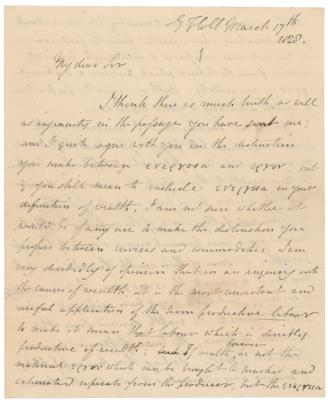 E I Coll March 17th
1828.
My dear Sir
I think there is much truth as well
as ingenuity in the passage you have sent me;
and I quite agree with you in the distinction
you make between ενεργεια and εργον but
if you still mean to exclude ενεργεια in your
definition of wealth, I am not sure whether it
would be of any use to make the distinction you
propose between services and commodities. I am
very decidedly of opinion that in an enquiry into
the causes of wealth, it is the most consistent and
useful application of the term productive labour
to make it mean that labour which is directly
productive of wealth; If wealth, however, be not the
material εργον which can be brought to market and
estimated separate from the producer, but the ενεργεια